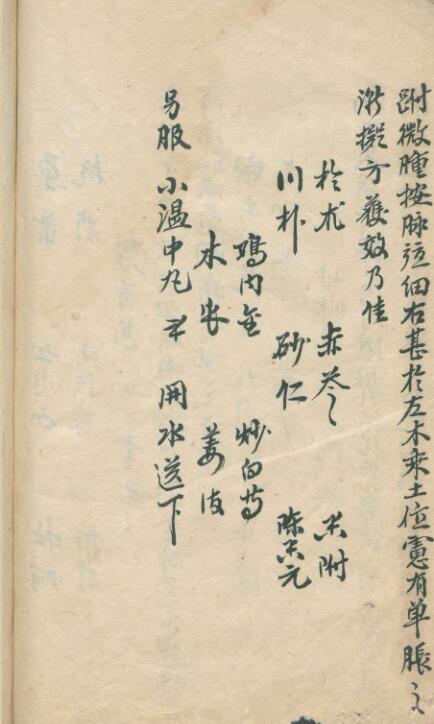 跗微腫按脉弦细右甚於左木乘土位慮有单脹之
渐擬方獲效乃佳
於朮 赤苓 香附
川朴 砂仁 陈香元
鸡内金 炒白芍
木 姜皮
另服 小温中丸 開水送下